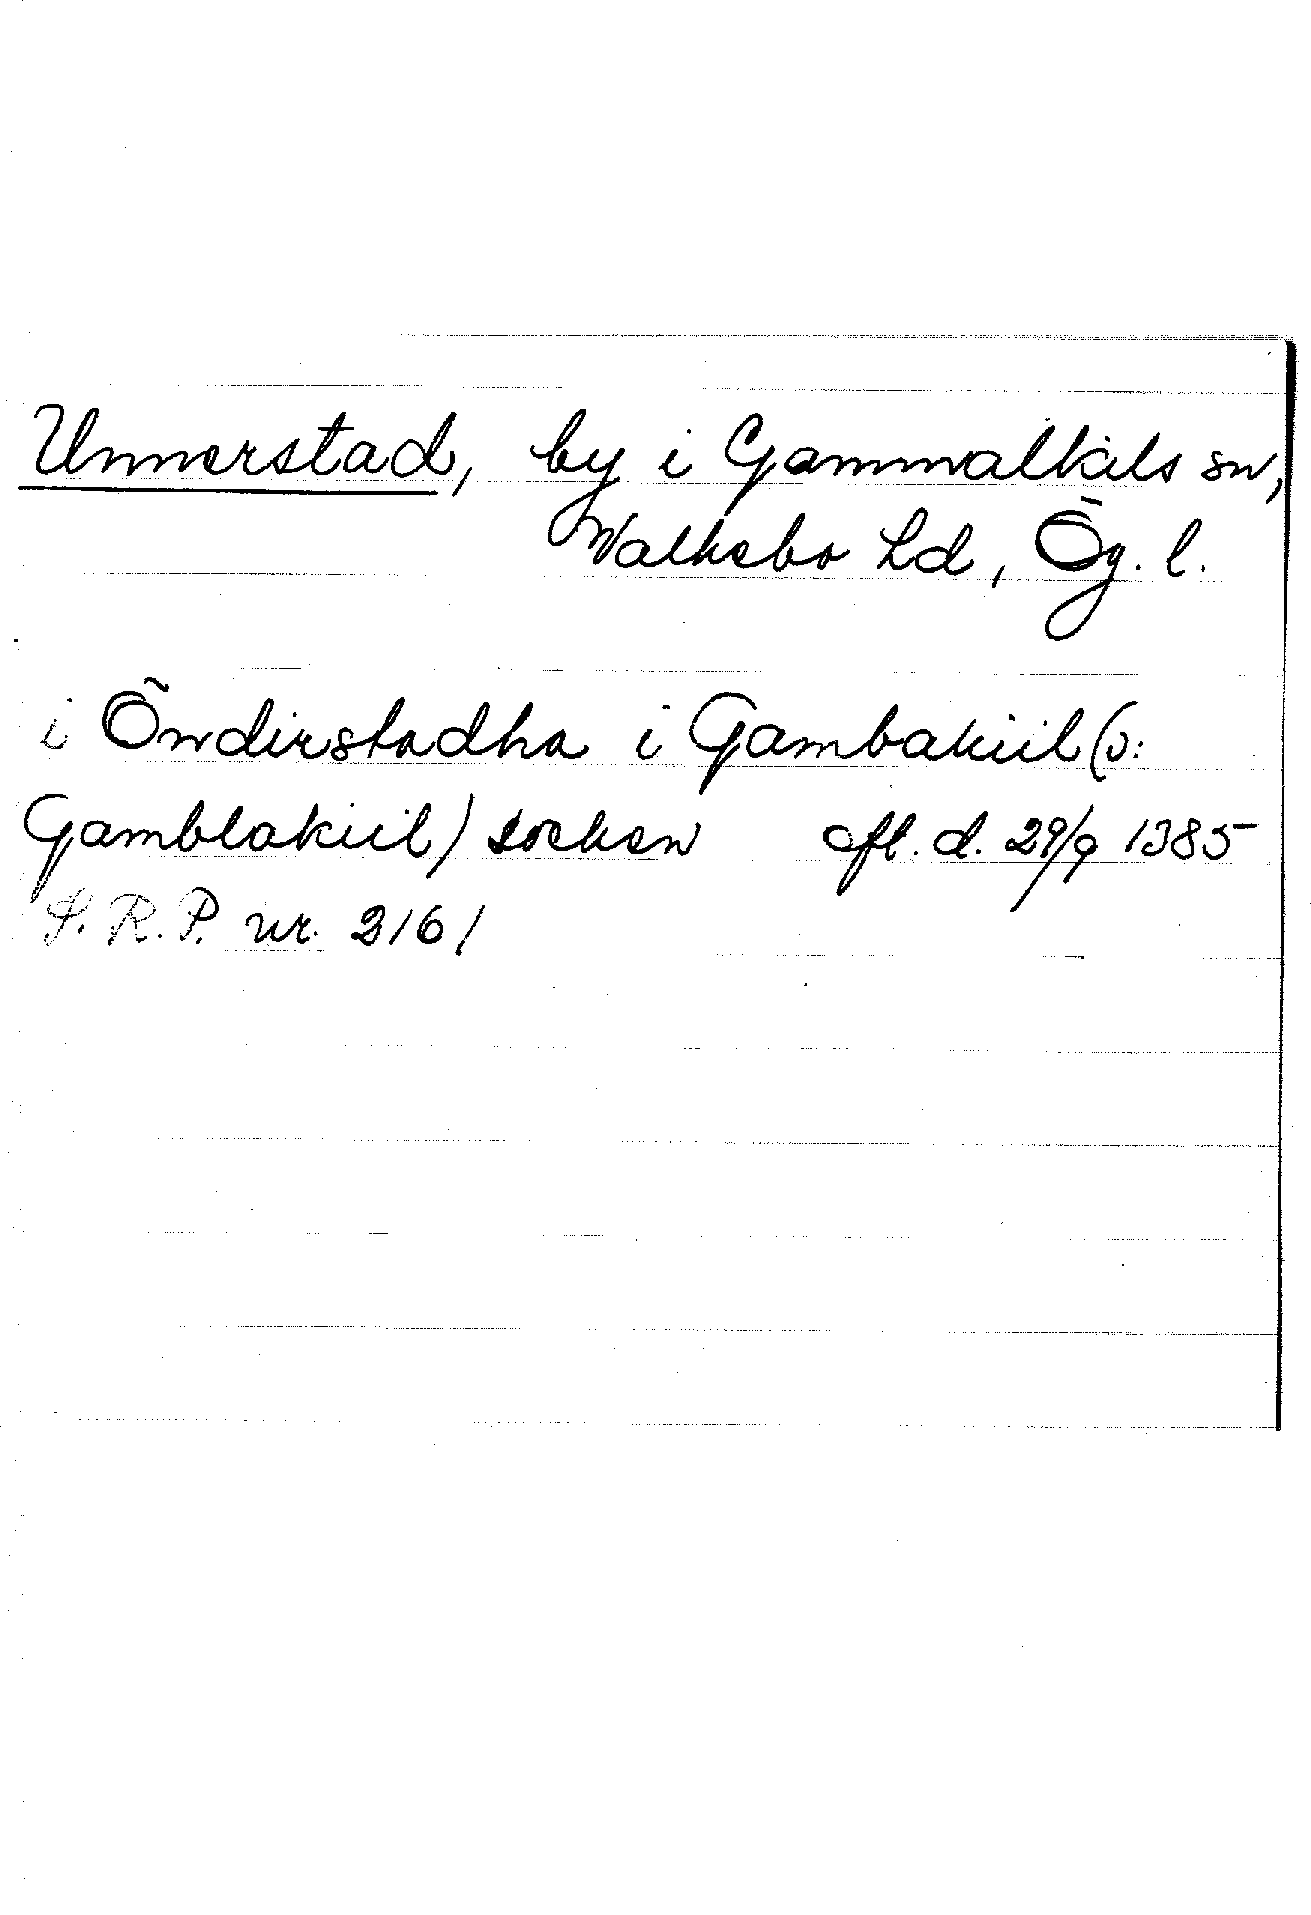 Unnerstad, by i Gammalkils sn,
Walkebo hd, Ög. l.
i Öndirstadha i Gambakiil (ɔ:
Gamblakiil) socken afl. d. 29/9 1385
S. R. P. nr. 2161